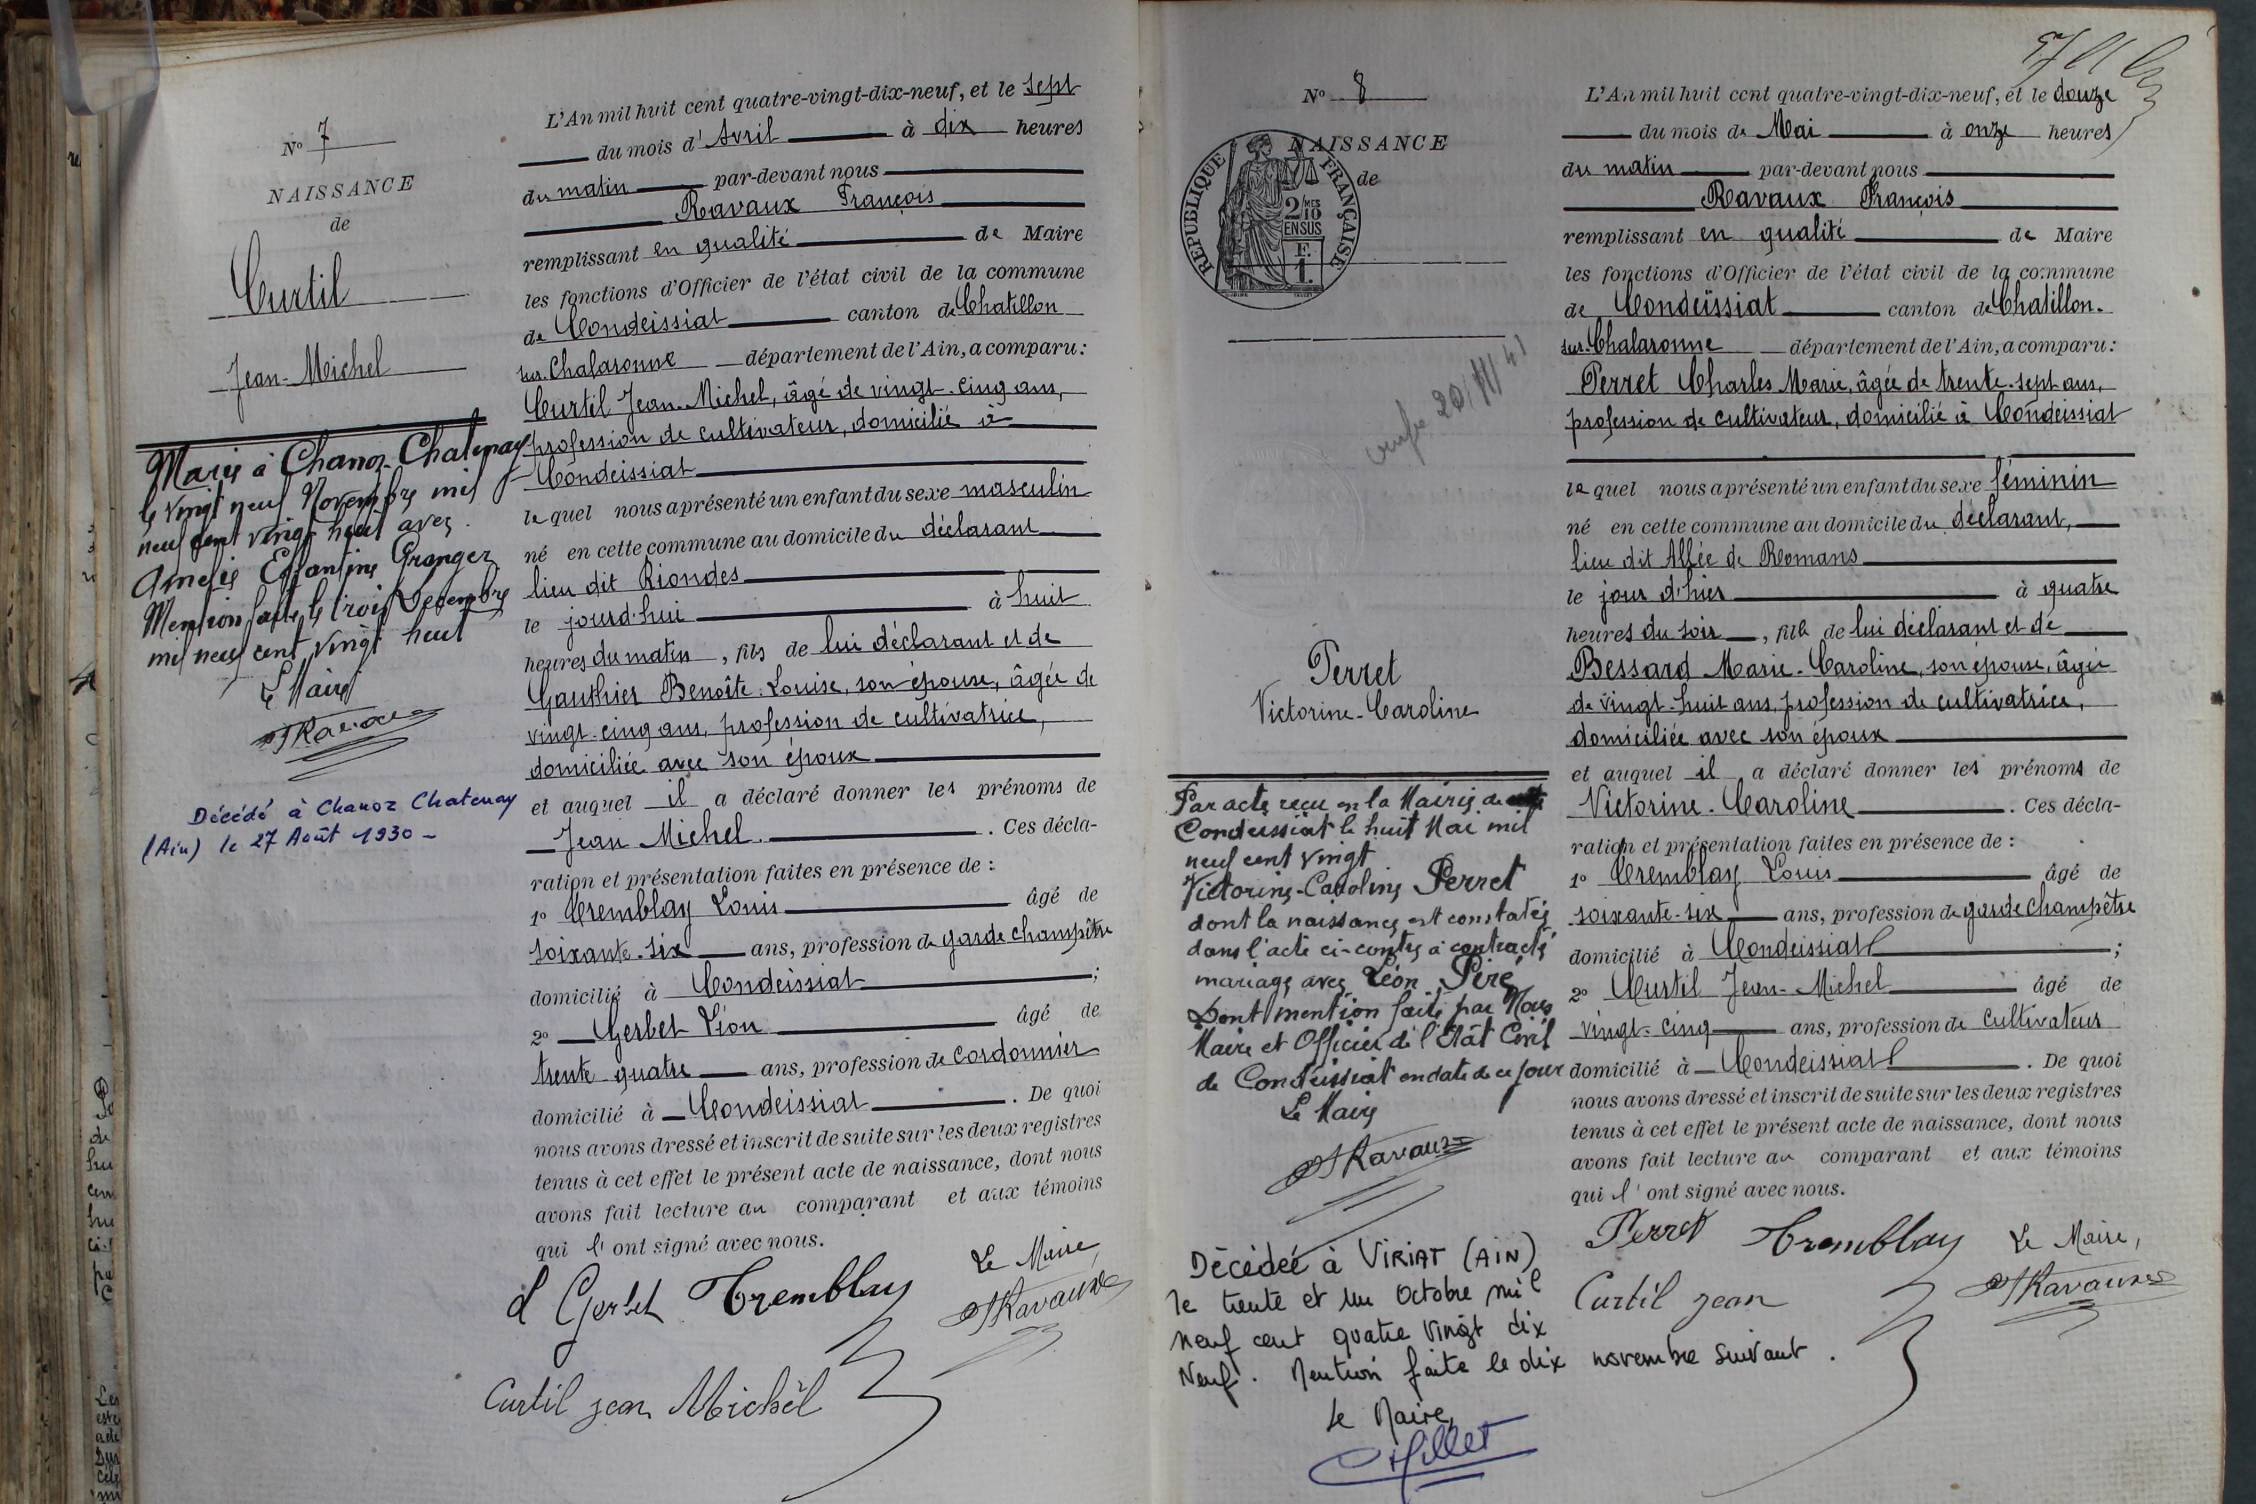 N° 7
NAISSANCE
de
Curtil
Jean-Michel
Marié à Chanoz-Chatenay
le vingt neuf Novembre mil
neuf cent vingt huit avec
Amélie Effantine Granger
Mention faite le trois Decembre
mil neuf cent vingt huit
Le Maire
Décédé à Chanoz Chatenay
(Ain) le 27 Août 1930 -
L'An mil huit cent quatre-vingt-dix-neuf, et le sept
du mois d'Avril à dix heures
du matin par-devant nous
Ravaux François
remplissant en qualité de Maire
les fonctions d'Officier de l'état civil de la commune
de Condeissiat canton de Chatillon
sur-Chalaronne département de l'Ain, a comparu :
Curtil Jean-Michel, âgé de vingt-cinq ans,
profession de cultivateur, domicilié à
Condeissiat
lequel nous a présenté un enfant du sexe masculin
né en cette commune au domicile du déclarant
lieu dit Riondes
le jourd'hui à huit
heures du matin, fils de lui déclarant et de
Gauthier Benoîte-Louise, son épouse, âgée de
vingt-cinq ans, profession de cultivatrice,
domiciliée avec son époux
et auquel il a déclaré donner les prénoms de
Jean Michel. Ces décla-
ration et présentation faites en présence de :
1° Tremblay Louis âgé de
soixante-six ans, profession de garde champêtre
domicilié à Condeissiat ;
2° Gerbet Léon âgé de
trente quatre ans, profession de cordonnier
domicilié à Condeissiat. De quoi
nous avons dressé et inscrit de suite sur les deux registres
tenus à cet effet le présent acte de naissance, dont nous
avons fait lecture au comparant et aux témoins
qui l'ont signé avec nous.
Le Maire,
Gerbet Tremblay Ravaux
Curtil jean Michel
N° 8
NAISSANCE
de
REPUBLIQUE FRANÇAISE
2/MES
10
ENSUS
F.
1.
Perret
Victorine-Caroline
Par acte reçu en la Mairie de
Condeissiat le huit Mai mil
neuf cent vingt
Victorine-Caroline Perret
dont la naissance est constatée
dans l'acte ci-contre a contracté
mariage avec Léon Piré
Dont mention faite par Nous
Maire et Officier de l'Etat Civil
de Condeissiat en date de ce jour
Le Maire
Ravaux
Décédée à VIRIAT (AIN)
le trente et un Octobre mil
neuf cent quatre vingt dix
Neuf. Mention faite le dix novembre suivant.
Le Maire,
L'An mil huit cent quatre-vingt-dix-neuf, et le douze
du mois de Mai à onze heures
du matin par-devant nous
Ravaux François
remplissant en qualité de Maire
les fonctions d'Officier de l'état civil de la commune
de Condeissiat canton de Chatillon-
sur-Chalaronne département de l'Ain, a comparu :
Perret Charles Marie, âgée de trente-sept ans,
profession de cultivateur, domicilié à Condeissiat
lequel nous a présenté un enfant du sexe féminin
né en cette commune au domicile du déclarant,
lieu dit Allée de Romans
le jour d'hier à quatre
heures du soir, fille de lui déclarant et de
Bessard Marie-Caroline, son épouse, âgée
de vingt-huit ans, profession de cultivatrice,
domiciliée avec son époux
et auquel il a déclaré donner les prénoms de
Victorine-Caroline. Ces décla-
ration et présentation faites en présence de :
1° Tremblay Louis âgé de
soixante-six ans, profession de garde champêtre
domicilié à Condeissiat ;
2° Curtil Jean-Michel âgé de
vingt-cinq ans, profession de cultivateur
domicilié à Condeissiat. De quoi
nous avons dressé et inscrit de suite sur les deux registres
tenus à cet effet le présent acte de naissance, dont nous
avons fait lecture au comparant et aux témoins
qui l'ont signé avec nous.
Perret Tremblay Le Maire,
Curtil jean Ravaux